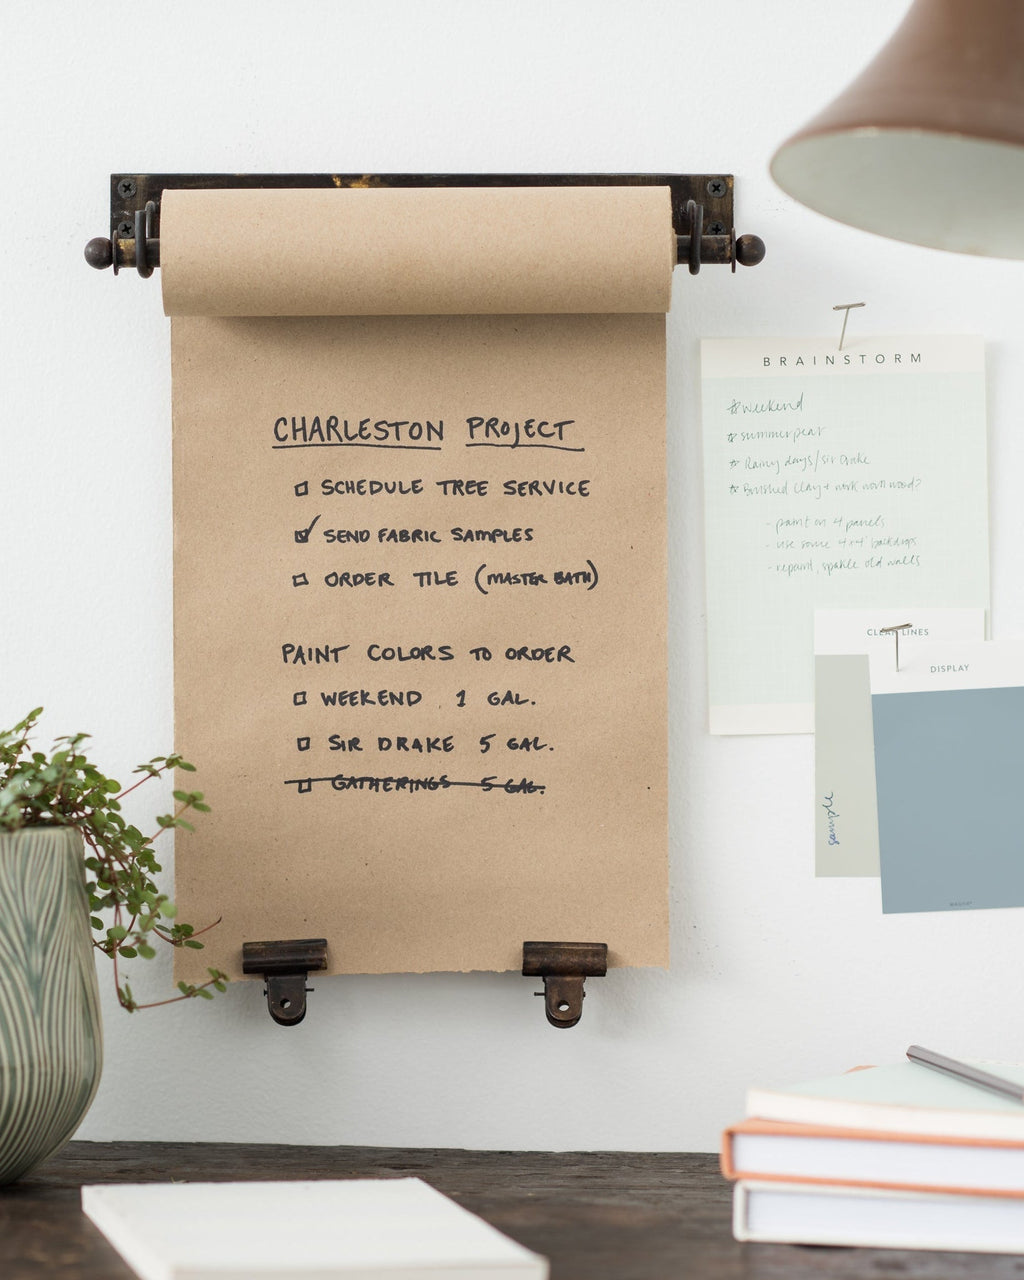 CHARLESTON PROJECT
SCHEDULE TREE SERVICE
SEND FABRIC SAMPLES
ORDER TILE (MASTER BATH)
PAINT COLORS TO ORDER
WEEKEND 1 GAL.
SIR DRAKE 5 GAL.
GATHERINGS 5 GAL.
BRAINSTORM
weekend
summer pear
Rainy days/sir drake
Brushed clay + work worn wood?
- paint on 4 panels
- use some 4x4' backdrops
- repaint, spakle old walls
CLEAN LINES
sample
DISPLAY